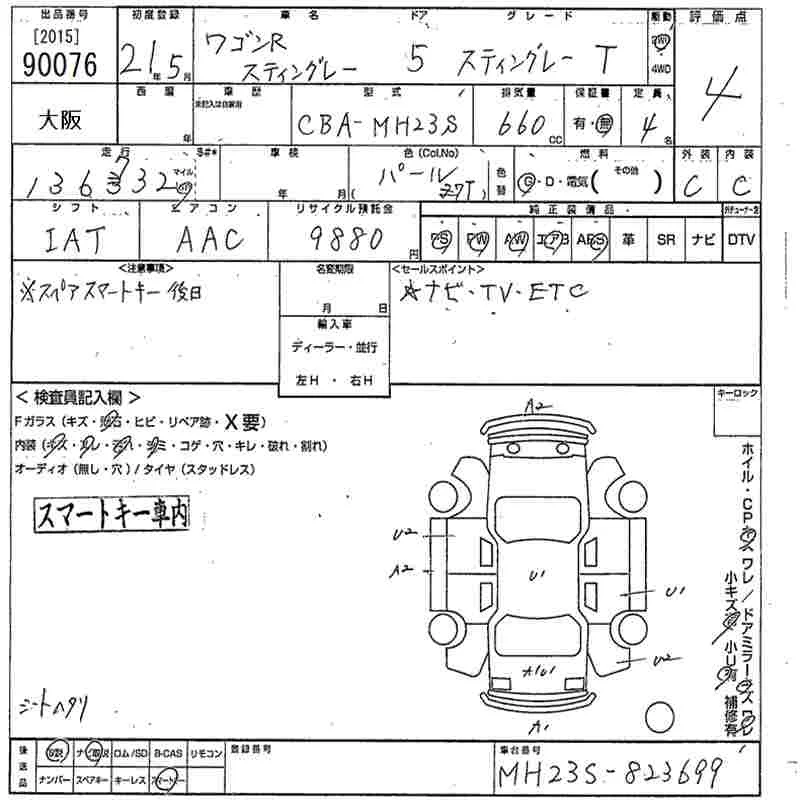 出品番号 初度登録 車名 ドア グレード 駆動 評価点
[2015]
90076 21年5月 ワゴンR スティングレー 5 スティングレー T 2WD 4WD 4
大阪
西暦 年 車歴 未記入は自家用 型式 CBA-MH23S 排気量 660cc 保証書 有・無 定員 4名
走行 136332 7 マイル km S#* 車検 年 月 色(Col,No) パール (Z7T) 色替 燃料 G・D・電気( その他 ) 外装 C 内装 C
シフト IAT エアコン AAC リサイクル預託金 9880円 純正装備品 PS PW AW エアB ABS 革 SR ナビ DTV
<注意事項> 名変期限 <セールスポイント>
※スペアスマートキー後日 月 日 ☆ナビ・TV・ETC
輸入車
ディーラー・並行
左H・右H
<検査員記入欄> キーロック
Fガラス(キズ・飛石・ヒビ・リペア跡・X要)
内装(キズ・スレ・汚れ・シミ・コゲ・穴・キレ・破れ・割れ)
オーディオ(無し・穴)/タイヤ(スタッドレス)
スマートキー車内
A2
U2
A2
U1
U1
U2
A1U1
A1
ホイル・CPキズ ワレ/ドアミラーキズ ワレ
小キズ有 小U有 補修有
シートヘタリ
後送品 取説 ナビ取説 ロム/SD B-CAS リモコン 登録番号 車台番号
ナンバー スペアキー キーレス スマートキー MH23S-823699